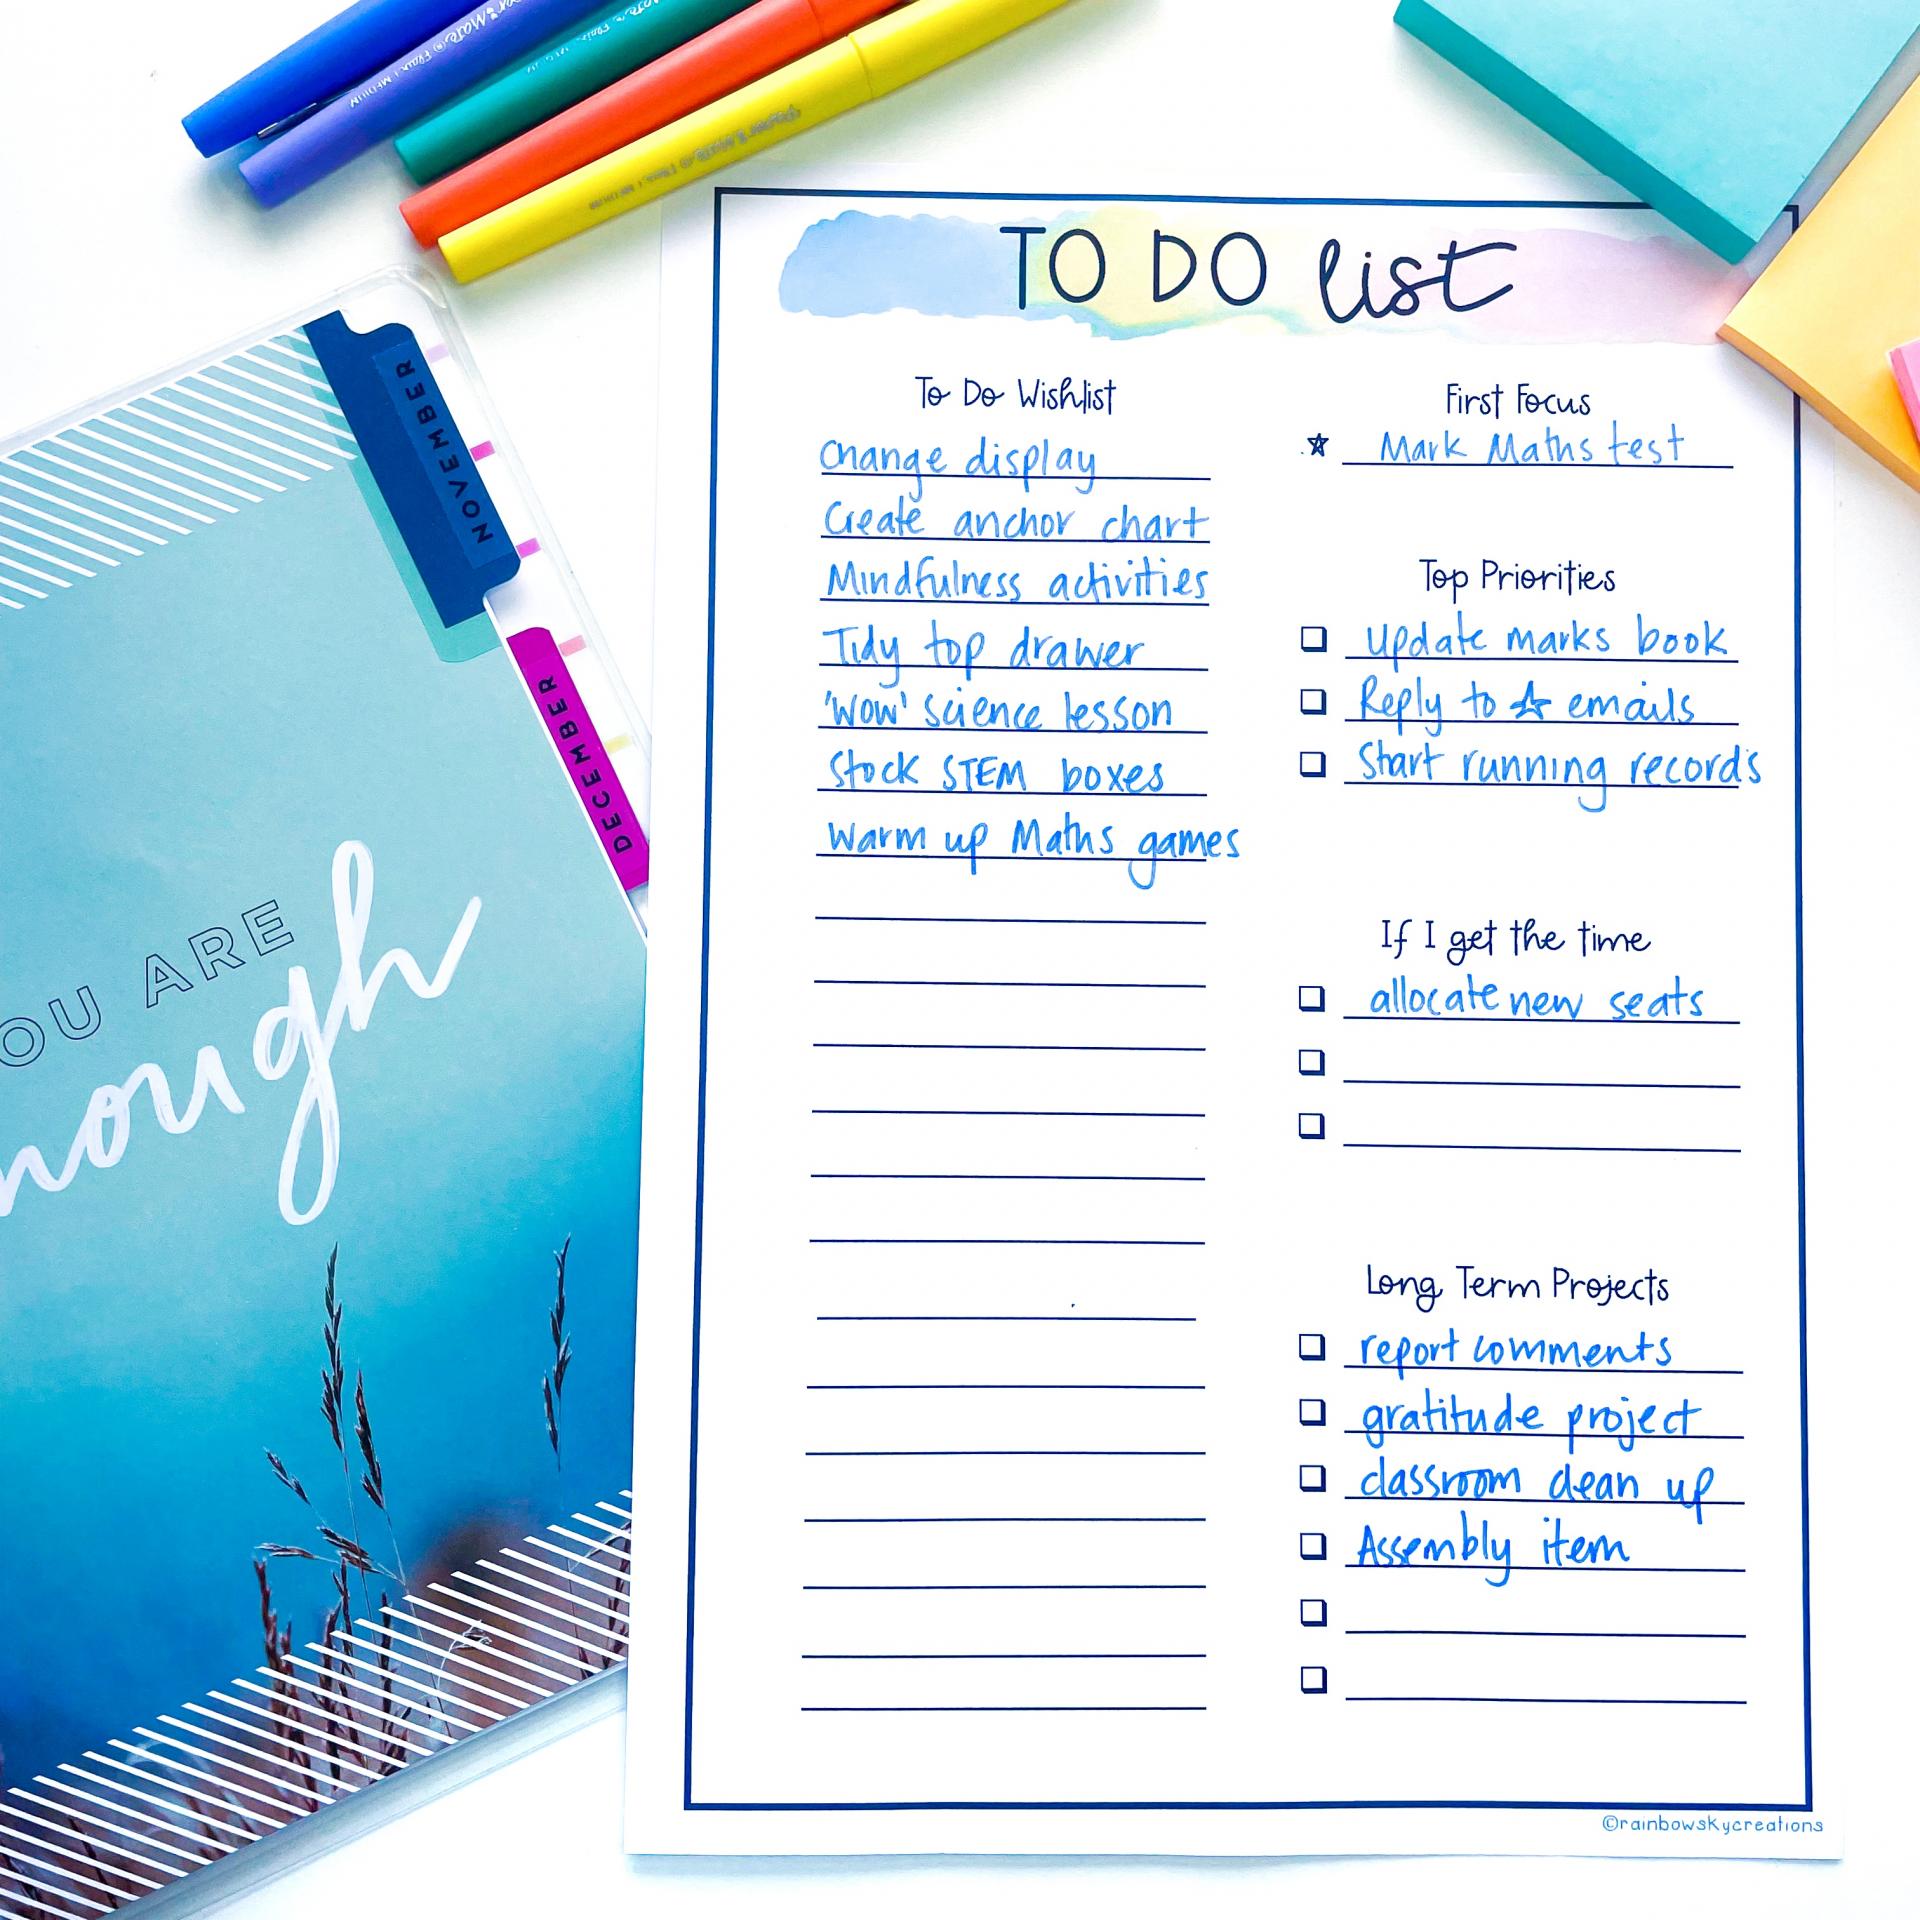 MEDIUM
MEDIUM
TO DO list
To Do Wishlist
Change display
Create anchor chart
Mindfulness activities
Tidy top drawer
'WOW' science lesson
Stock STEM boxes
Warm up Maths games
First Focus
Mark Maths test
Top Priorities
Update marks book
Reply to ☆ emails
Start running records
If I get the time
allocate new seats
Long Term Projects
report comments
gratitude project
classroom clean up
Assembly item
©rainbowskycreations
NOVEMBER
DECEMBER
OU ARE
nough